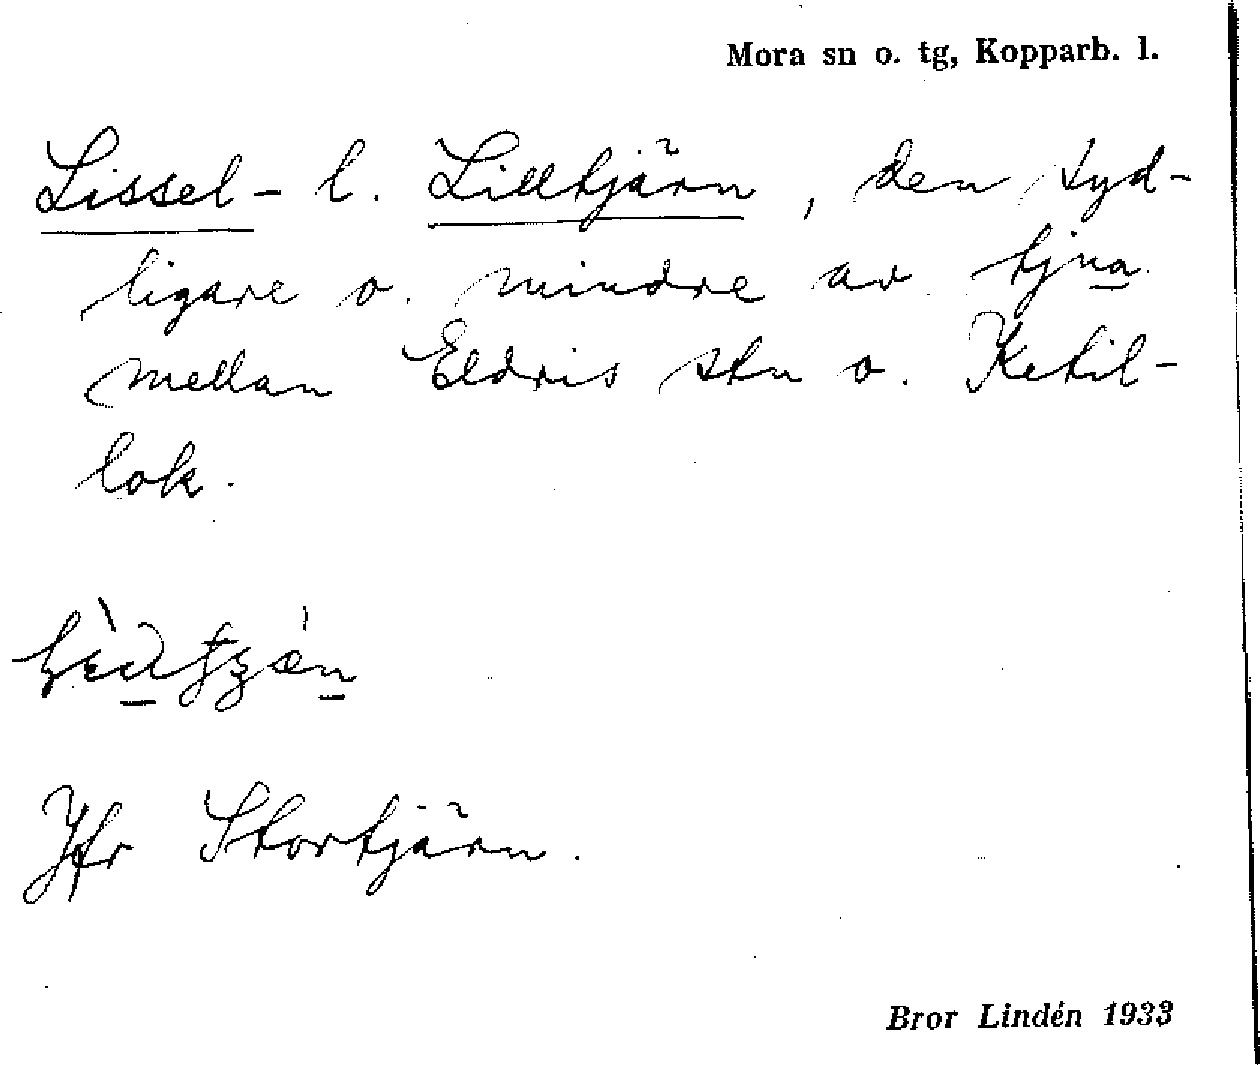 Mora sn o. tg, Kopparb. l.
Lissel- l. Lilltjärn, den syd-
ligare o. mindre av tjna
mellan Eldris stn o. Ketil-
bok.
Jfr Stortjärn.
Bror Lindén 1933